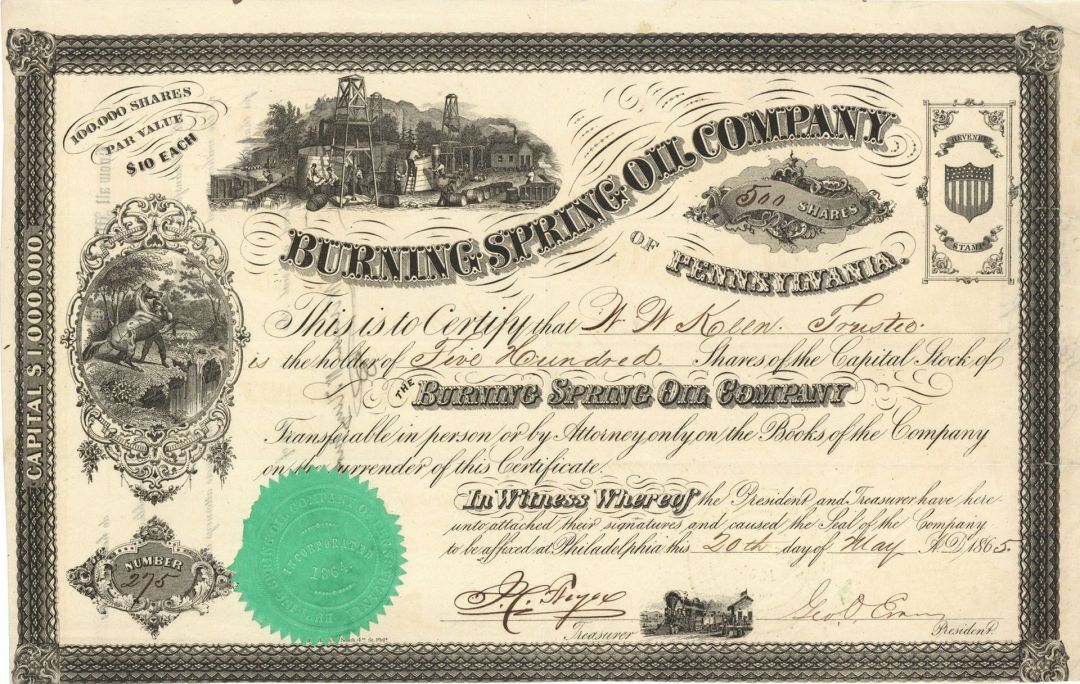 100,000 SHARES
PAR VALUE
$10 EACH
BURNING SPRING OIL COMPANY
OF
PENNSYLVANIA.
500 SHARES
REVENUE
STAMP
CAPITAL $1,000,000
This is to Certify that W W Keen. Trustee.
is the holder of Five Hundred Shares of the Capital Stock of
THE BURNING SPRING OIL COMPANY
Transferable in person or by Attorney only on the Books of the Company
on the surrender of this Certificate.
In Witness Whereof the President and Treasurer have here
unto attached their signatures and caused the Seal of the Company
to be affixed at Philadelphia this 20th day of May A.D. 1865.
NUMBER
275
INCORPORATED
1864.
Treasurer
Geo. O.
President.